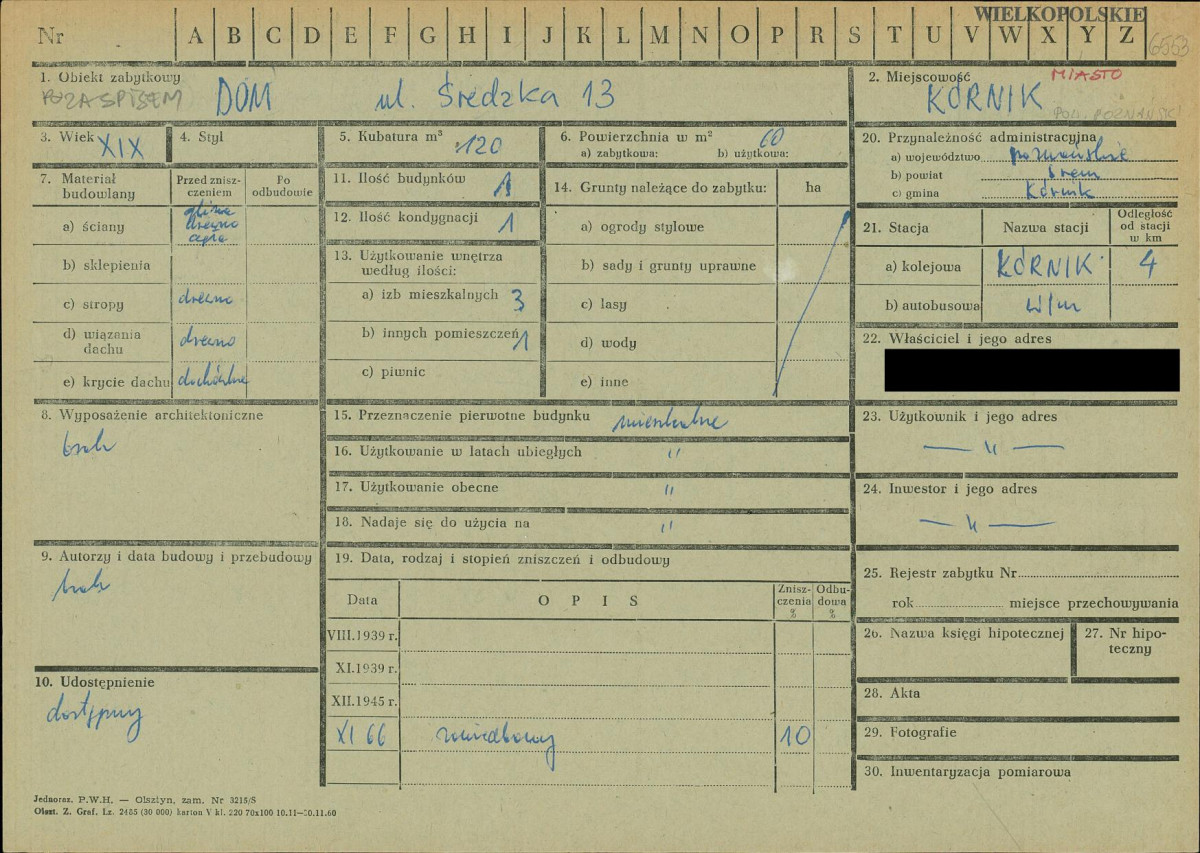 WIELKOPOLSKIE
Nr A B C D E F G H I J K L M N O P R S T U V W X Y Z 6553
1. Obiekt zabytkowy
POZA SPISEM DOM ul. Średzka 13
2. Miejscowość MIASTO
KÓRNIK
POW. POZNAŃSKI
3. Wiek XIX
4. Styl
5. Kubatura m³ 120
6. Powierzchnia w m² 60
a) zabytkowa: b) użytkowa:
20. Przynależność administracyjna
a) województwo poznańskie
b) powiat Śrem
c) gmina Kórnik
7. Materiał budowlany
Przed zniszczeniem
Po odbudowie
a) ściany glina drewno cegła
b) sklepienia
c) stropy drewno
d) wiązania dachu drewno
e) krycie dachu dachówka
11. Ilość budynków 1
12. Ilość kondygnacji 1
13. Użytkowanie wnętrza według ilości:
a) izb mieszkalnych 3
b) innych pomieszczeń 1
c) piwnic
14. Grunty należące do zabytku: ha
a) ogrody stylowe
b) sady i grunty uprawne
c) lasy
d) wody
e) inne
21. Stacja Nazwa stacji Odległość od stacji w km
a) kolejowa KÓRNIK 4
b) autobusowa w/m
22. Właściciel i jego adres
8. Wyposażenie architektoniczne
brak
15. Przeznaczenie pierwotne budynku mieszkalne
16. Użytkowanie w latach ubiegłych "
17. Użytkowanie obecne "
18. Nadaje się do użycia na "
23. Użytkownik i jego adres
— " —
24. Inwestor i jego adres
— " —
9. Autorzy i data budowy i przebudowy
brak
19. Data, rodzaj i stopień zniszczeń i odbudowy
Data OPIS Zniszczenia % Odbudowa %
VIII.1939 r.
XI.1939 r.
XII.1945 r.
XI 66 zaniedbany 10
25. Rejestr zabytku Nr
rok miejsce przechowywania
26. Nazwa księgi hipotecznej
27. Nr hipoteczny
28. Akta
29. Fotografie
30. Inwentaryzacja pomiarowa
10. Udostępnienie
dostępny
Jednoraz. P.W.H. — Olsztyn, zam. Nr 3215/S
Olszt. Z. Graf. Lz. 2485 (30 000) karton V kl. 220 70x100 10.11—30.11.60